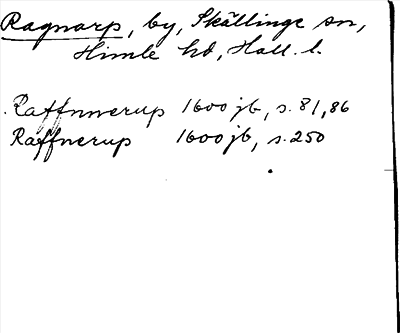 Ragnarp, by, Skällinge sn,
Himle hd, Hall. l.
Raffnnerup 1600 jb, s. 81, 86
Raffnerup 1600 jb, s. 250